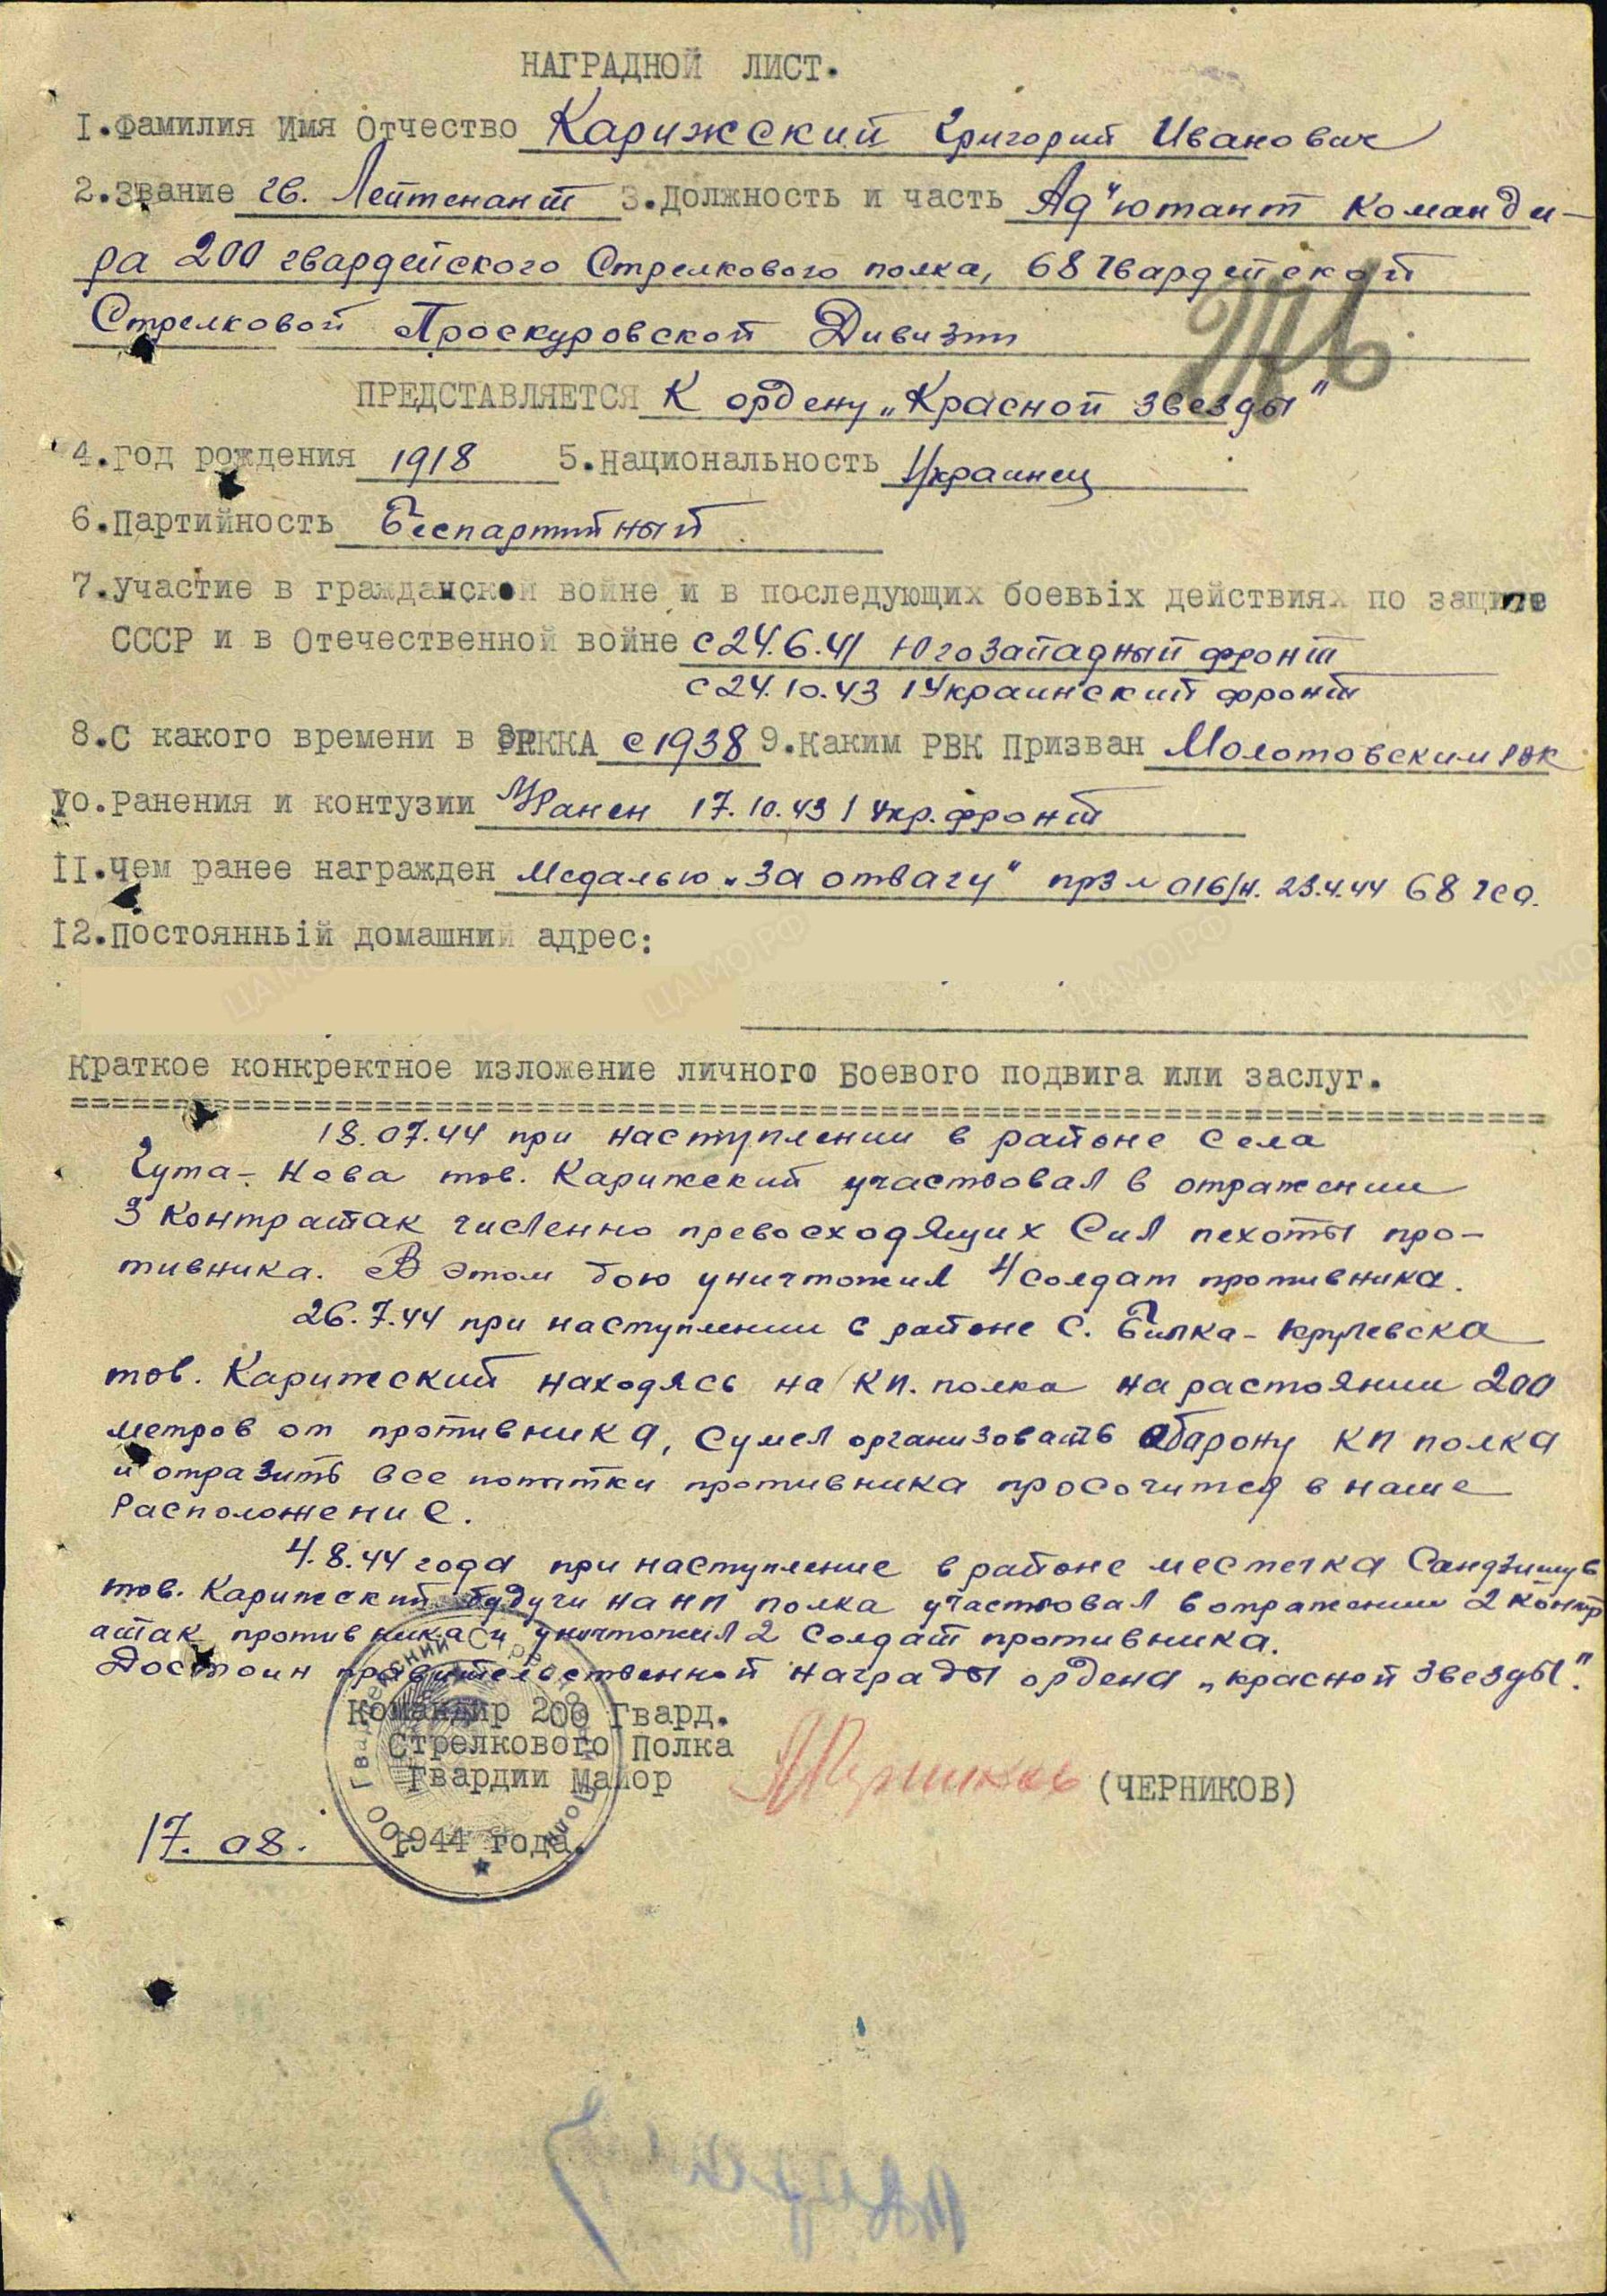 НАГРАДНОЙ ЛИСТ.
I.Фамилия Имя Отчество Карижский Григорий Иванович
2.Звание гв. Лейтенант 3.Должность и часть Ад"ютант команди-
ра 200 гвардейского Стрелкового полка, 68 Гвардейской
Стрелковой Проскуровской Дивизии
ПРЕДСТАВЛЯЕТСЯ К ордену „Красной звезды"
4.Год рождения 1918 5.Национальность Украинец
6.Партийность Беспартийный
7.Участие в гражданской войне и в последующих боевых действиях по защите
СССР и в Отечественной войне с 24.6.41 Югозападный фронт
с 24.10.43 1 Украинский фронт
8.С какого времени в РККА с 1938 9.Каким РВК Призван Молотовским РВК
Io.Ранения и контузии Ранен 17.10.43 1 Укр. фронт
II.Чем ранее награжден Медалью „За отвагу" прз № 016/н. 23.4.44 68 гсд.
I2.Постоянный домашний адрес:
Краткое конкретное изложение личного Боевого подвига или заслуг.
18.07.44 при наступлении в районе села
Гута-Нова тов. Карижский участвовал в отражении
3 контратак численно превосходящих Сил пехоты про-
тивника. В этом бою уничтожил 4 солдат противника.
26.7.44 при наступлении в районе С. Билка-Крулевска
тов. Карижский находясь на КП. полка на растоянии 200
метров от противника, Сумел организовать абарону КП полка
и отразить все попытки противника просочится в наше
Расположение.
4.8.44 года при наступление в районе местечка Сандзишув
тов. Карижский будучи на НП полка участвовал в отражении 2 контр
атак противника и уничтожил 2 солдат противника.
Достоин правительственной награды ордена „красной звезды".
Командир 200 Гвард.
Стрелкового Полка
Гвардии Майор (ЧЕРНИКОВ)
17. 08. 1944 года.